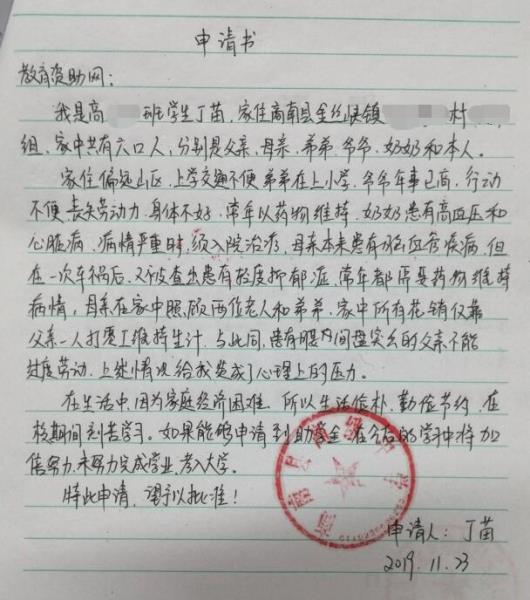 申请书
教育资助网：
我是高 班学生丁苗，家住商南县金丝峡镇 村
组，家中共有六口人，分别是父亲、母亲、弟弟、爷爷、奶奶和本人。
家住偏远山区，上学交通不便，弟弟在上小学，爷爷年事已高，行动
不便，丧失劳动力，身体不好，常年以药物维持，奶奶患有高血压和
心脏病，病情严重时，须入院治疗，母亲本来患有脑血管疾病，但
在一次车祸后，又被查出患有轻度抑郁症，常年都需要药物维持
病情，母亲在家中照顾两位老人和弟弟，家中所有花销仅靠
父亲一人打零工维持生计，与此同，患有腰内间盘突出的父亲不能
过度劳动，上述情况给我造成了心理上的压力。
在生活中，因为家庭经济困难，所以生活俭朴，勤俭节约，在
校期间刻苦学习。如果能够申请到助学金，在今后的学习中将加
倍努力，来努力完成学业，考入大学。
特此申请，望予以批准！
申请人：丁苗
2019.11.23